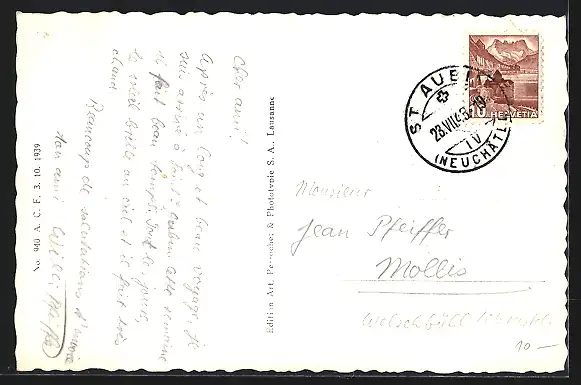 Cher ami!
Après un long et beau voyage, je
suis arrivé à Saint-Aubin. Cette semaine
il fait beau temps. Tout le jour,
le soleil brille au ciel et il fait très
chaud.
Beaucoup de salutations d'amitié
ton ami Willi
No. 940 A. C. F. 3. 10. 1939
Edition Art. Perrochet & Phototypie S. A., Lausanne
ST AUBIN
28.VII.43-19
IV
(NEUCHÂTEL)
HELVETIA
Monsieur
Jean Pfeiffer
Mollis
10 —